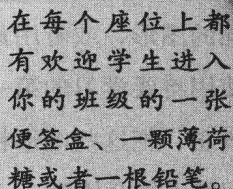 在每个座位上都
有欢迎学生进入
你的班级的一张
便签盒、一颗薄荷
糖或者一根铅笔。